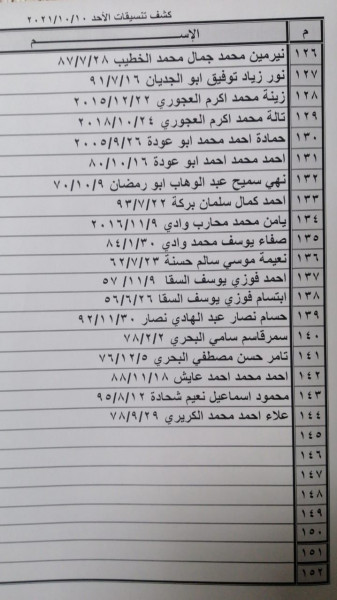 كشف تنسيقات الأحد ٢٠٢١/١٠/١٠
م الإســــــم
١٢٦ نيرمين محمد جمال محمد الخطيب ٨٧/٧/٢٨
١٢٧ نور زياد توفيق ابو الجديان ٩١/٧/١٦
١٢٨ زينة محمد اكرم العجوري ٢٠١٥/١٢/٢٢
١٢٩ تالة محمد اكرم العجوري ٢٠١٨/١٠/٢٤
١٣٠ حمادة احمد محمد ابو عودة ٢٠٠٥/٩/٢٦
١٣١ احمد محمد احمد ابو عودة ٨٠/١٠/١٦
١٣٢ نهي سميح عبد الوهاب ابو رمضان ٧٠/١٠/٩
١٣٣ احمد كمال سلمان بركة ٩٣/٧/٢٢
١٣٤ يامن محمد محارب وادي ٢٠١٦/١١/٩
١٣٥ صفاء يوسف محمد وادي ٨٤/١/٣٠
١٣٦ نعيمة موسي سالم حسنة ٦٢/٧/٢٣
١٣٧ احمد فوزي يوسف السقا ١١/٩/ ٥٧
١٣٨ ابتسام فوزي يوسف السقا ٥٦/٦/٢٦
١٣٩ حسام نصار عبد الهادي نصار ٩٢/١١/٣٠
١٤٠ سمرقاسم سامي البحري ٧٨/٢/٢
١٤١ تامر حسن مصطفي البحري ٧٦/١٢/٥
١٤٢ احمد محمد احمد عايش ٨٨/١١/١٨
١٤٣ محمود اسماعيل نعيم شحادة ٩٥/٨/١٢
١٤٤ علاء احمد محمد الكريري ٧٨/٩/٢٩
١٤٥
١٤٦
١٤٧
١٤٨
١٤٩
١٥٠
١٥١
١٥٢